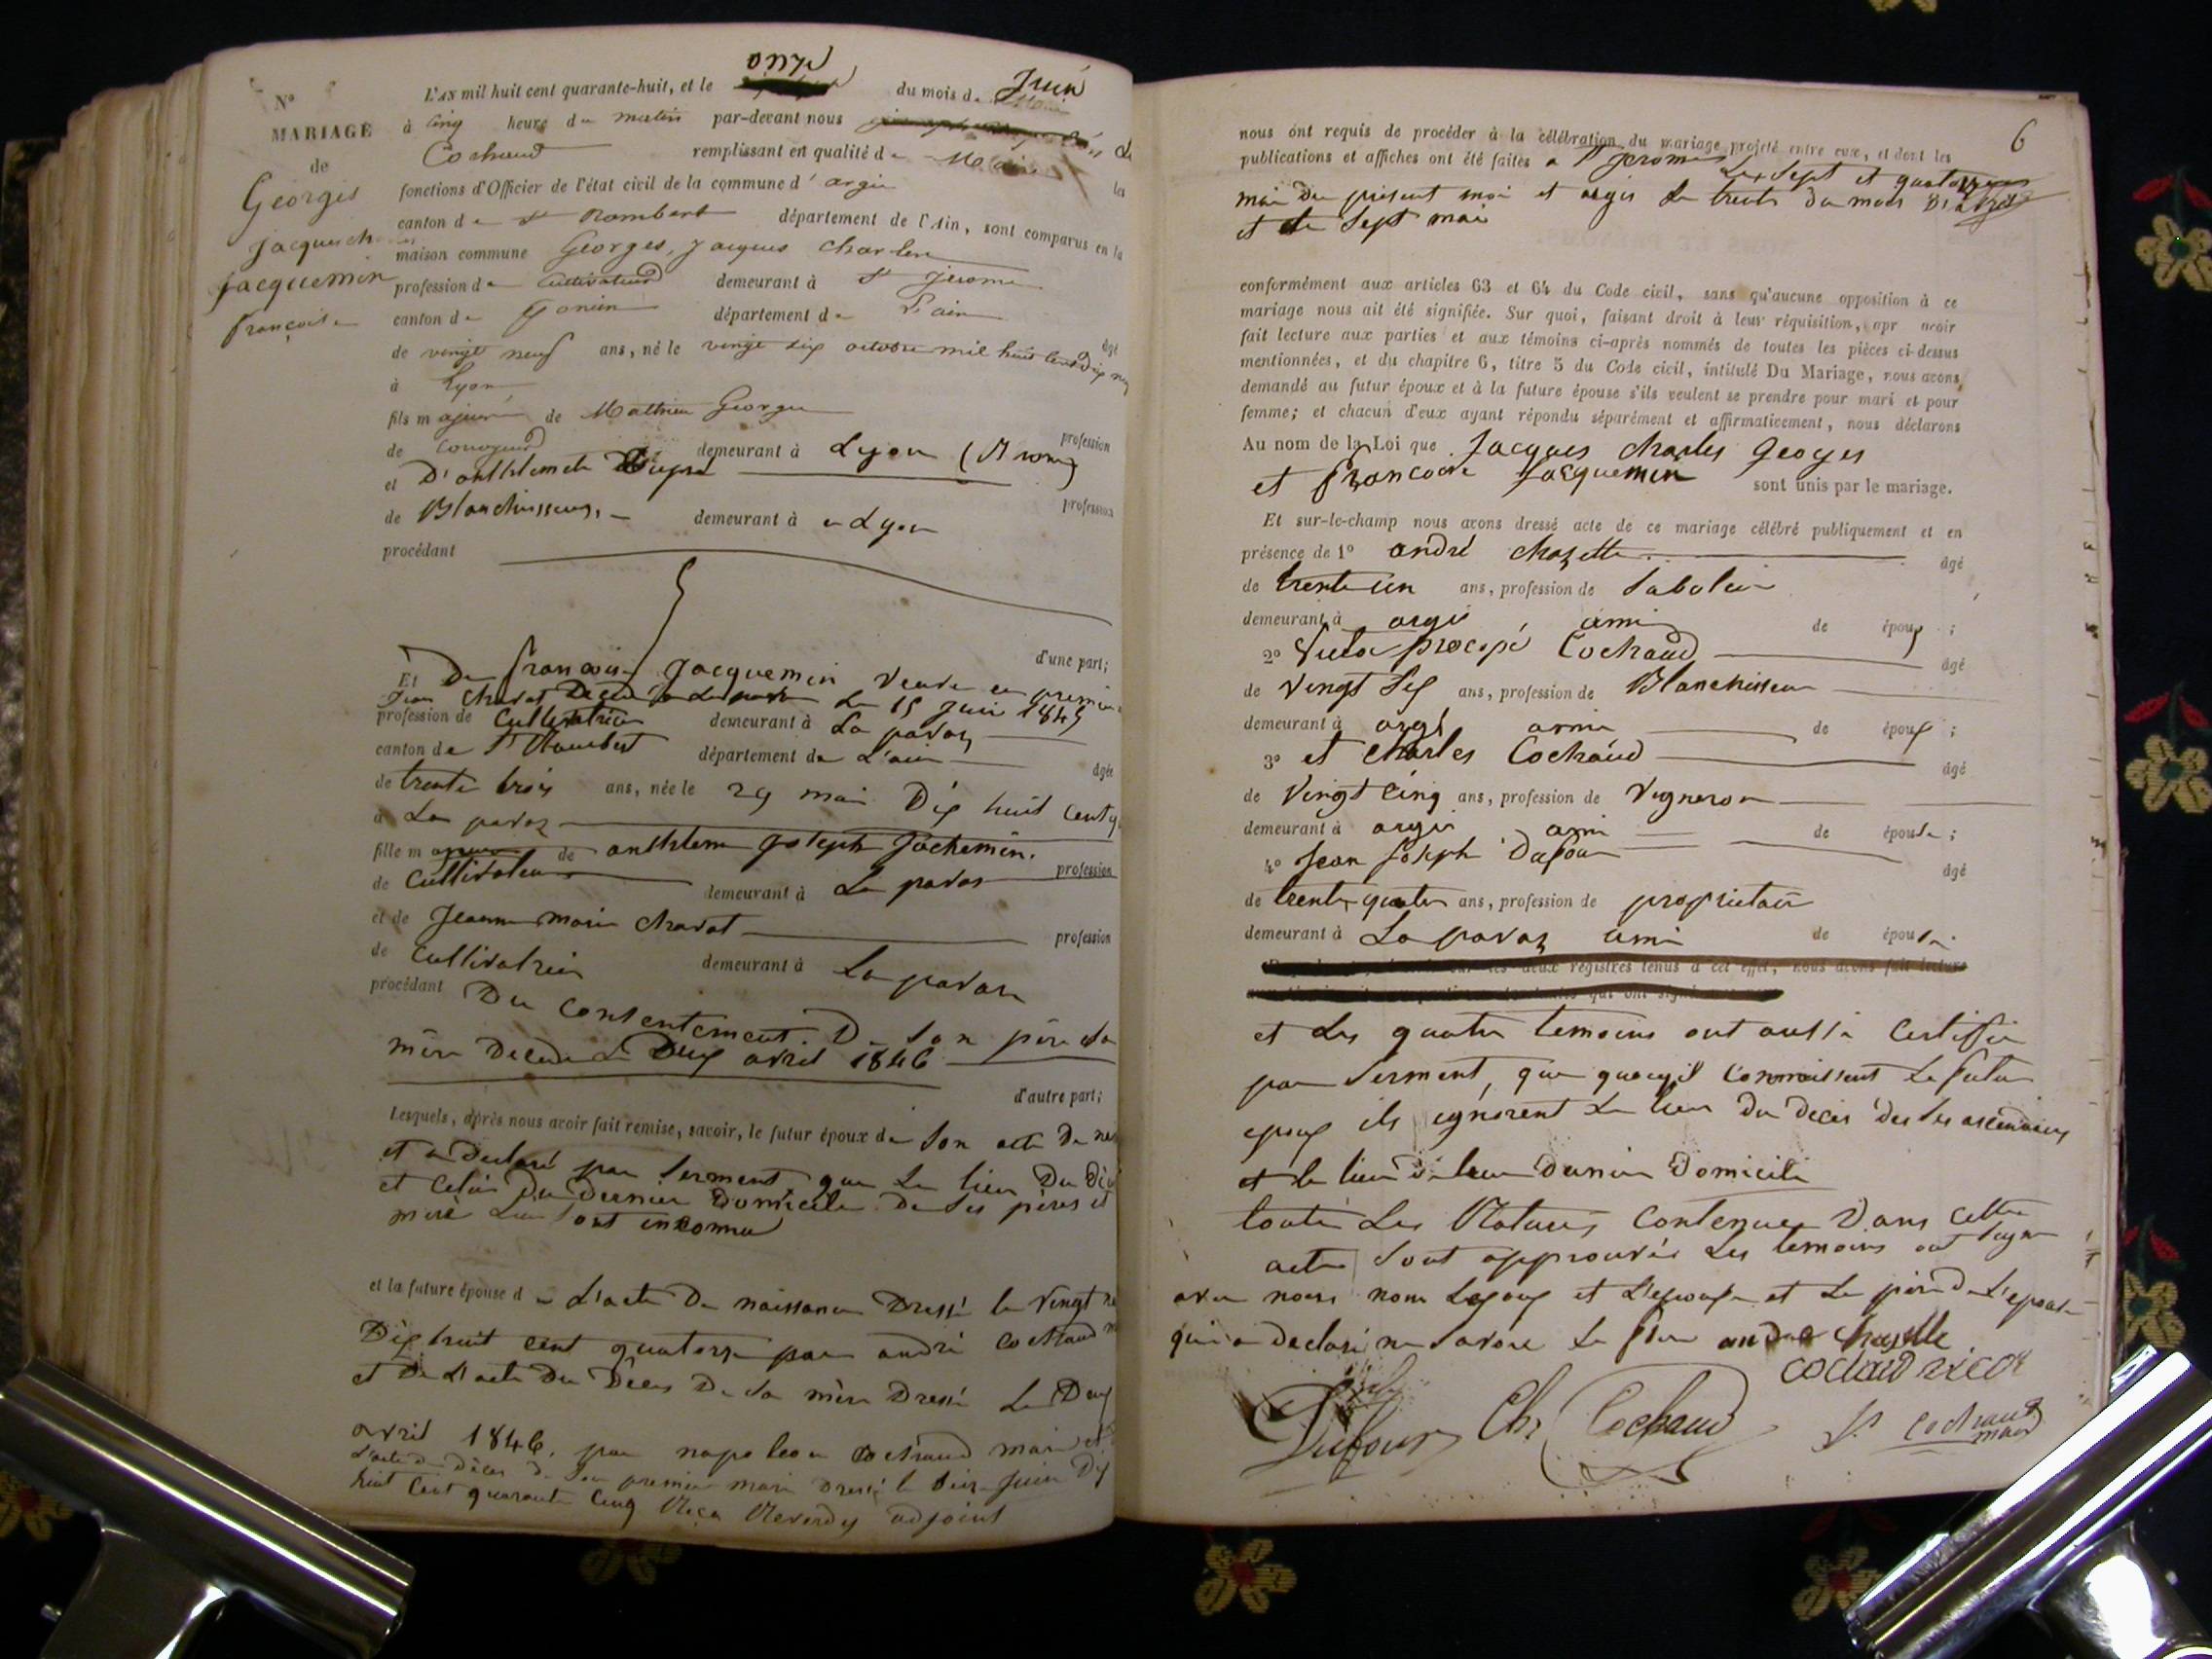 N°
MARIAGE
de
Georges
jacques ch
jacquemin
françoise
L'AN mil huit cent quarante-huit, et le onze du mois d. Juin
à cinq heure du matin par-devant nous
Cochaud remplissant en qualité de Maire les
fonctions d'Officier de l'état civil de la commune d'argis
canton de St Rambert département de l'Ain, sont comparus en la
maison commune Georges, jacques charles
profession de Cultivateur demeurant à St jerome
canton de poncin département de L'ain
âgé
de vingt neuf ans, né le vingt six octobre mil huit cent dix
à Lyon
fils majeur de Mathieu Georges
profession
de demeurant à Lyon (Rhone)
et D'anthlemette Dupré
profession
de Blanchisseuse demeurant à a Lyon
procédant
d'une part;
Et De françoise Jacquemin Veuve en premier
Jean Chavat Décédé le 15 Juin 1845
profession de Cultivatrice demeurant à La pavaz
canton de St Rambert département de L'ain
âgée
de trente trois ans, née le 29 mai Dix huit cent q
à La pavaz
fille majeure de anthlem Joseph Jachemin.
profession
de Cultivateur demeurant à La pavas
et de Jeanne marie Chavat
profession
de Cultivatrice demeurant à La pavaz
procédant Du Consentement De son père sa
mère Décédée Le Deux avril 1846
d'autre part;
Lesquels, après nous avoir fait remise, savoir, le futur époux de son acte De
et a Declaré par serment que Le lieu Du
et Celui Du Dernier Domicile De ses pères et
mère Leur sont inconnu
et la future épouse de L'acte De naissance Dressé le Vingt
Dix huit cent quatorze par andré Cochaud
et De L'acte Du Décès De sa mère Dressé Le Deux
avril 1846, par napoleon Cochaud maire et
L'acte De Décès De son premier mari Dressé le seize Juin Dix
huit Cent quarante Cinq adjoint
6
nous ont requis de procéder à la célébration du mariage projeté entre eux, et dont les
publications et affiches ont été faites a St Jerome Les Sept et quatorze
mai du présent moi et argis Le trente du mois D'avril
et le Sept mai
conformément aux articles 63 et 64 du Code civil, sans qu'aucune opposition à ce
mariage nous ait été signifiée. Sur quoi, faisant droit à leur réquisition, apr avoir
fait lecture aux parties et aux témoins ci-après nommés de toutes les pièces ci-dessus
mentionnées, et du chapitre 6, titre 5 du Code civil, intitulé Du Mariage, nous avons
demandé au futur époux et à la future épouse s'ils veulent se prendre pour mari et pour
femme; et chacun d'eux ayant répondu séparément et affirmativement, nous déclarons
Au nom de la Loi que Jacques Charles Georges
et françoise Jacquemin sont unis par le mariage.
Et sur-le-champ nous avons dressé acte de ce mariage célébré publiquement et en
présence de 1° andré chazette âgé
de trente un ans, profession de Sabotier
demeurant à argis ami de époux ;
2° Victor procopé Cochaud âgé
de Vingt Six ans, profession de Blanchisseur
demeurant à argis ami de époux ;
3° et Charles Cochaud âgé
de Vingt Cinq ans, profession de Vigneron
demeurant à argis ami de épouse ;
4° Jean Joseph Dufour âgé
de trente quatre ans, profession de propriétaire
demeurant à La pavaz ami de épouse
sur les deux registres tenus à cet effet, nous avons fait lecture
qui ont signé
et Les quatre temoins ont aussi Certifié
par Serment, que quoiqu'il Connaissent Le futur
epoux ils ignorent Le lieu Du Deces Des Ses ascendants
et le lieu De leur Dernier Domicile
toutes Les Ratures Contenues Dans Cette
acte Sont approuvées Les temoins ont Signé
avec nous non Lepoux et L'epouse et Le père De L'epouse
qui a Declaré ne Savoir Le faire andré chazette
cochaud victor
Dufour Ch Cochaud Cochaud
maire